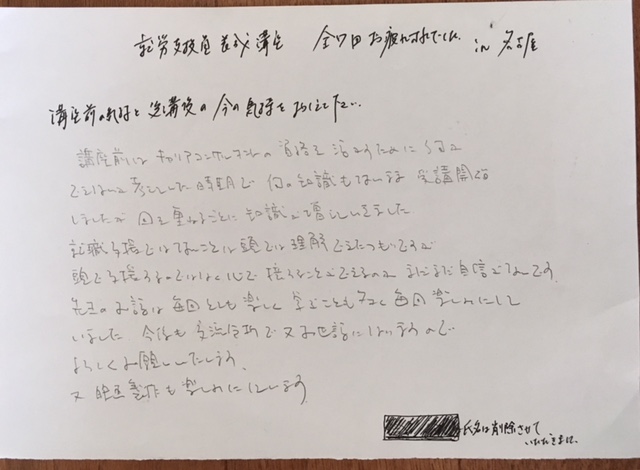 就労支援員養成講座 全7回お疲れさまでした。 in 名古屋
講座前の気持と受講後の今の気持をおしえて下さい。
講座前はキャリアコンサルタントの資格を活かすために何が
できないか考えていた時期で 何の知識もないまま 受講開始
しましたが 回を重ねるごとに知識が増していきました
就職支援ではないことは頭では理解できたつもりですが
頭で支援するのではなく心で接することができるのか まだまだ自信がないです。
先生のお話は毎回とても楽しく 学ぶことも多く 毎回楽しみにして
いました 今後も交流会等で又お世話になりますので
よろしくお願いいたします。
又 映画製作も楽しみにしています
氏名は削除させて
いただきました。